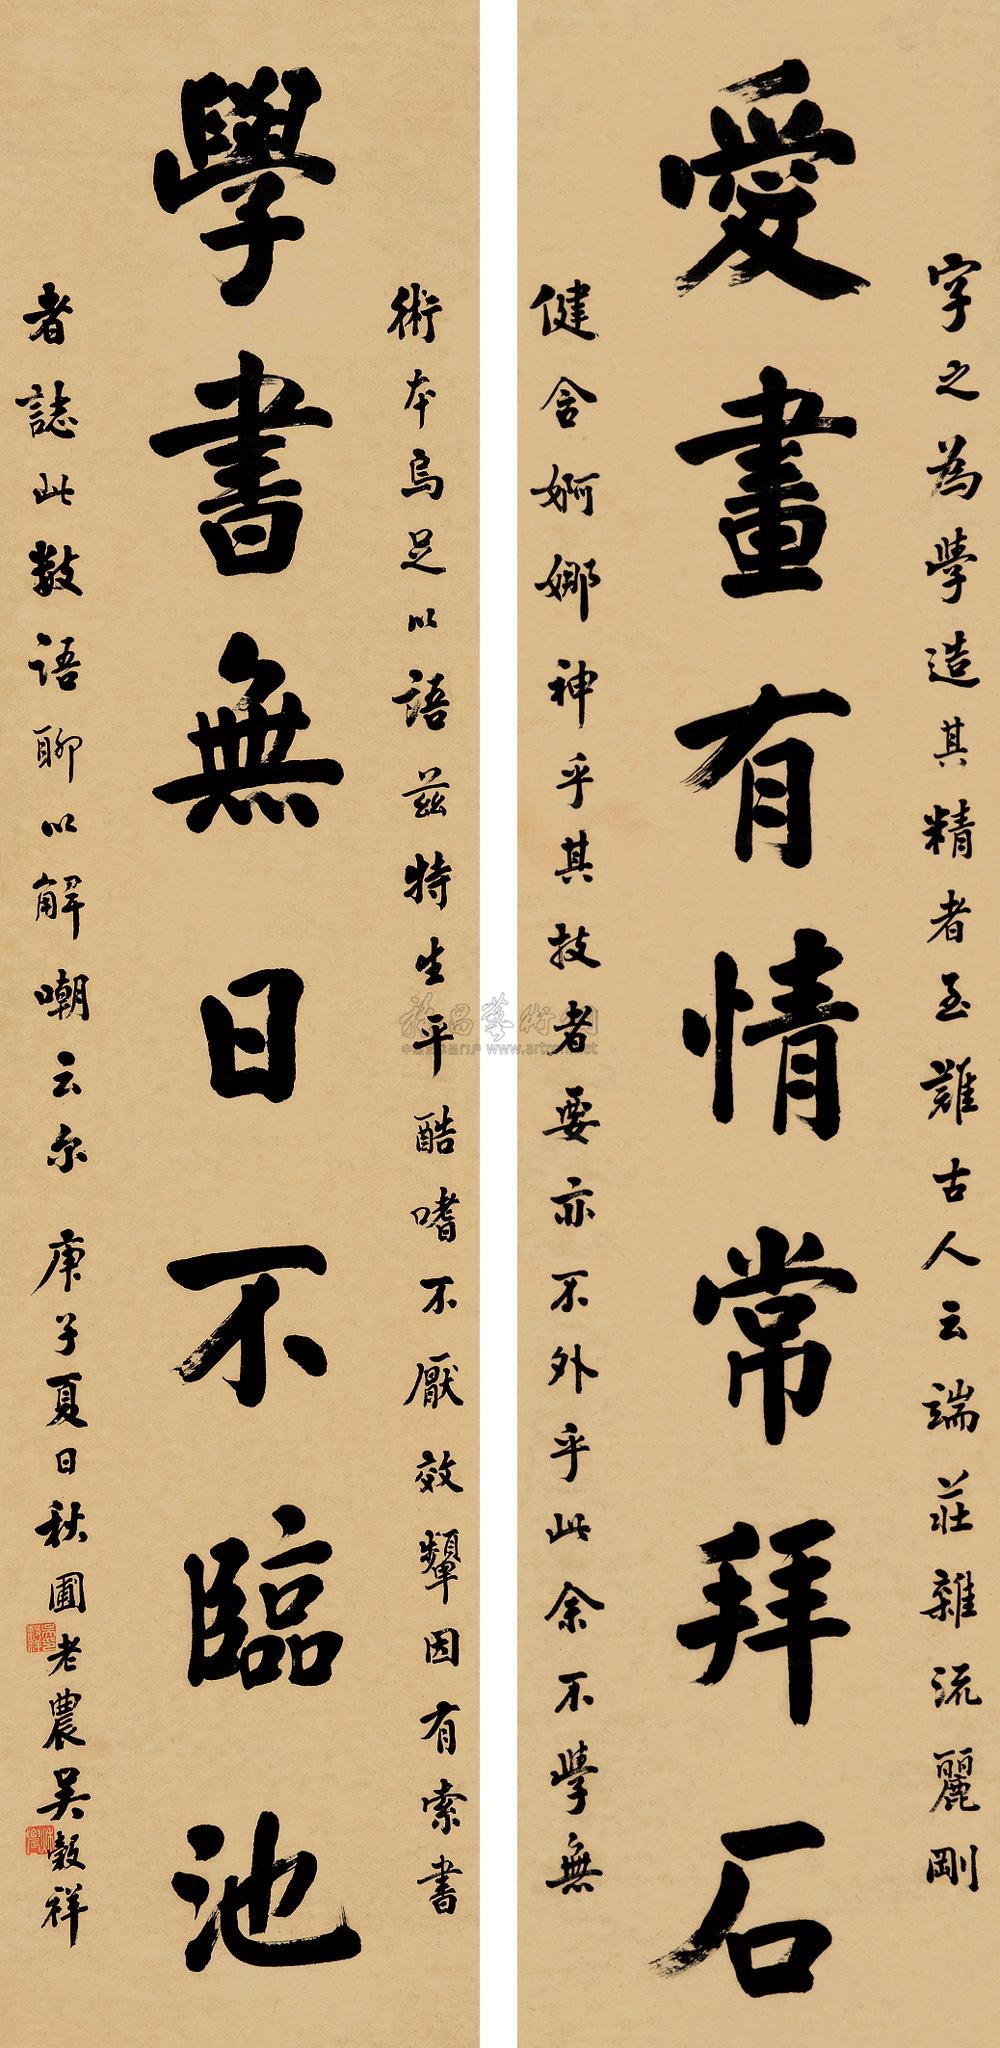 字之為學造其精者至難古人云端莊雜流麗剛
愛畫有情常拜石
健含婀娜神乎其技者要亦不外乎此余不學無
術本烏足以語茲特生平酷嗜不厭效顰因有索書
學書無日不臨池
者誌此數語聊以解嘲云尔 庚子夏日秋圃老農吳穀祥